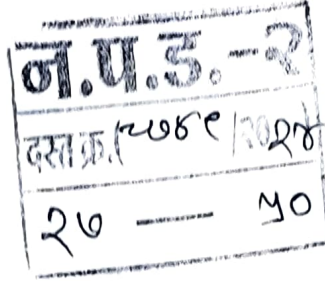 न.प.ड.-२
दस्त क्र.(१७४९/२०२४
२७ — ५०